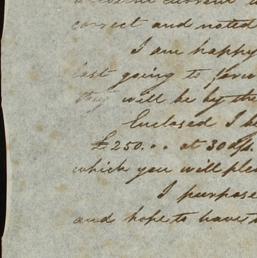 correct and noted
I am happy
last going to
they will be by the
Enclosed I
£250.. at 30 d/s.
which you will
I purpose
and hope to have